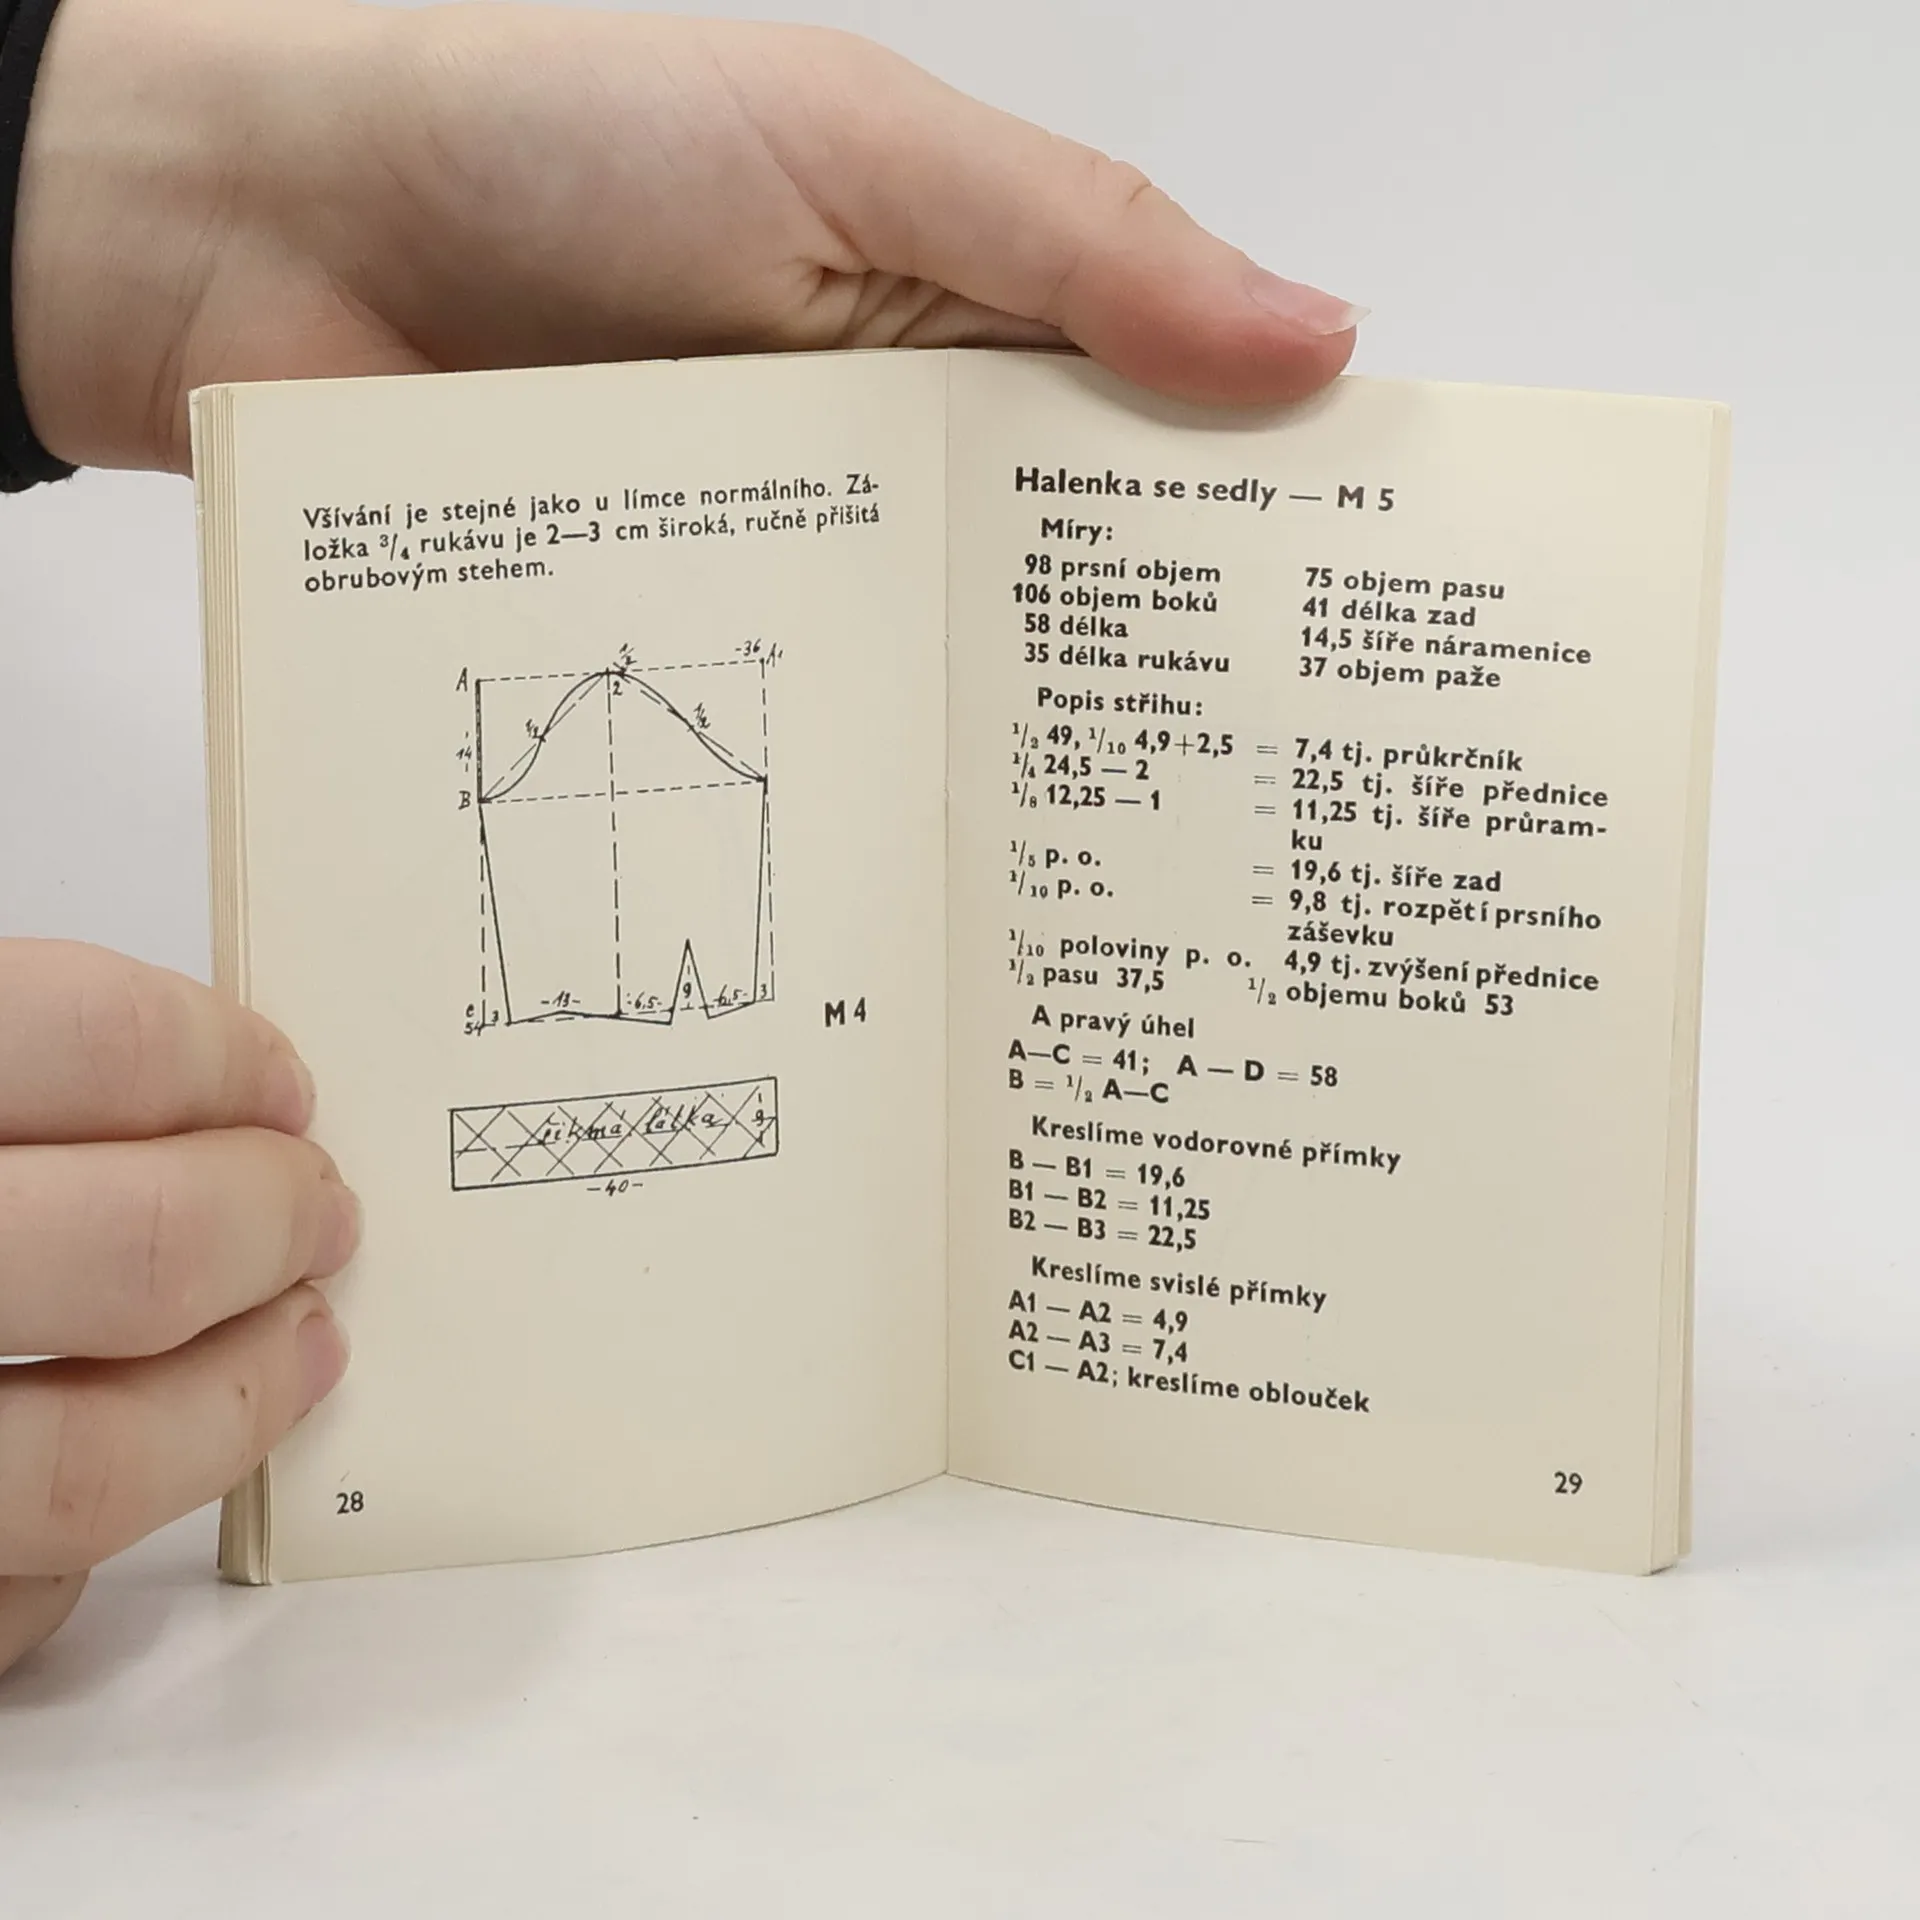 Všívání je stejné jako u límce normálního. Zá-
ložka ³/₄ rukávu je 2—3 cm široká, ručně přišitá
obrubovým stehem.
A
½
2
-36
A₁
½
½
14
B
e
54
3
-13-
6,5-
9
6,5-
3
M 4
šikmá látka
9
-40-
28
Halenka se sedly — M 5
Míry:
98 prsní objem 75 objem pasu
106 objem boků 41 délka zad
58 délka 14,5 šíře náramenice
35 délka rukávu 37 objem paže
Popis střihu:
¹/₂ 49, ¹/₁₀ 4,9+2,5 = 7,4 tj. průkrčník
¹/₄ 24,5 — 2 = 22,5 tj. šíře přednice
¹/₈ 12,25 — 1 = 11,25 tj. šíře průram-
ku
¹/₅ p. o. = 19,6 tj. šíře zad
¹/₁₀ p. o. = 9,8 tj. rozpětí prsního
záševku
¹/₁₀ poloviny p. o. 4,9 tj. zvýšení přednice
¹/₂ pasu 37,5 ¹/₂ objemu boků 53
A pravý úhel
A—C = 41; A — D = 58
B = ¹/₂ A—C
Kreslíme vodorovné přímky
B — B1 = 19,6
B1 — B2 = 11,25
B2 — B3 = 22,5
Kreslíme svislé přímky
A1 — A2 = 4,9
A2 — A3 = 7,4
C1 — A2; kreslíme oblouček
29